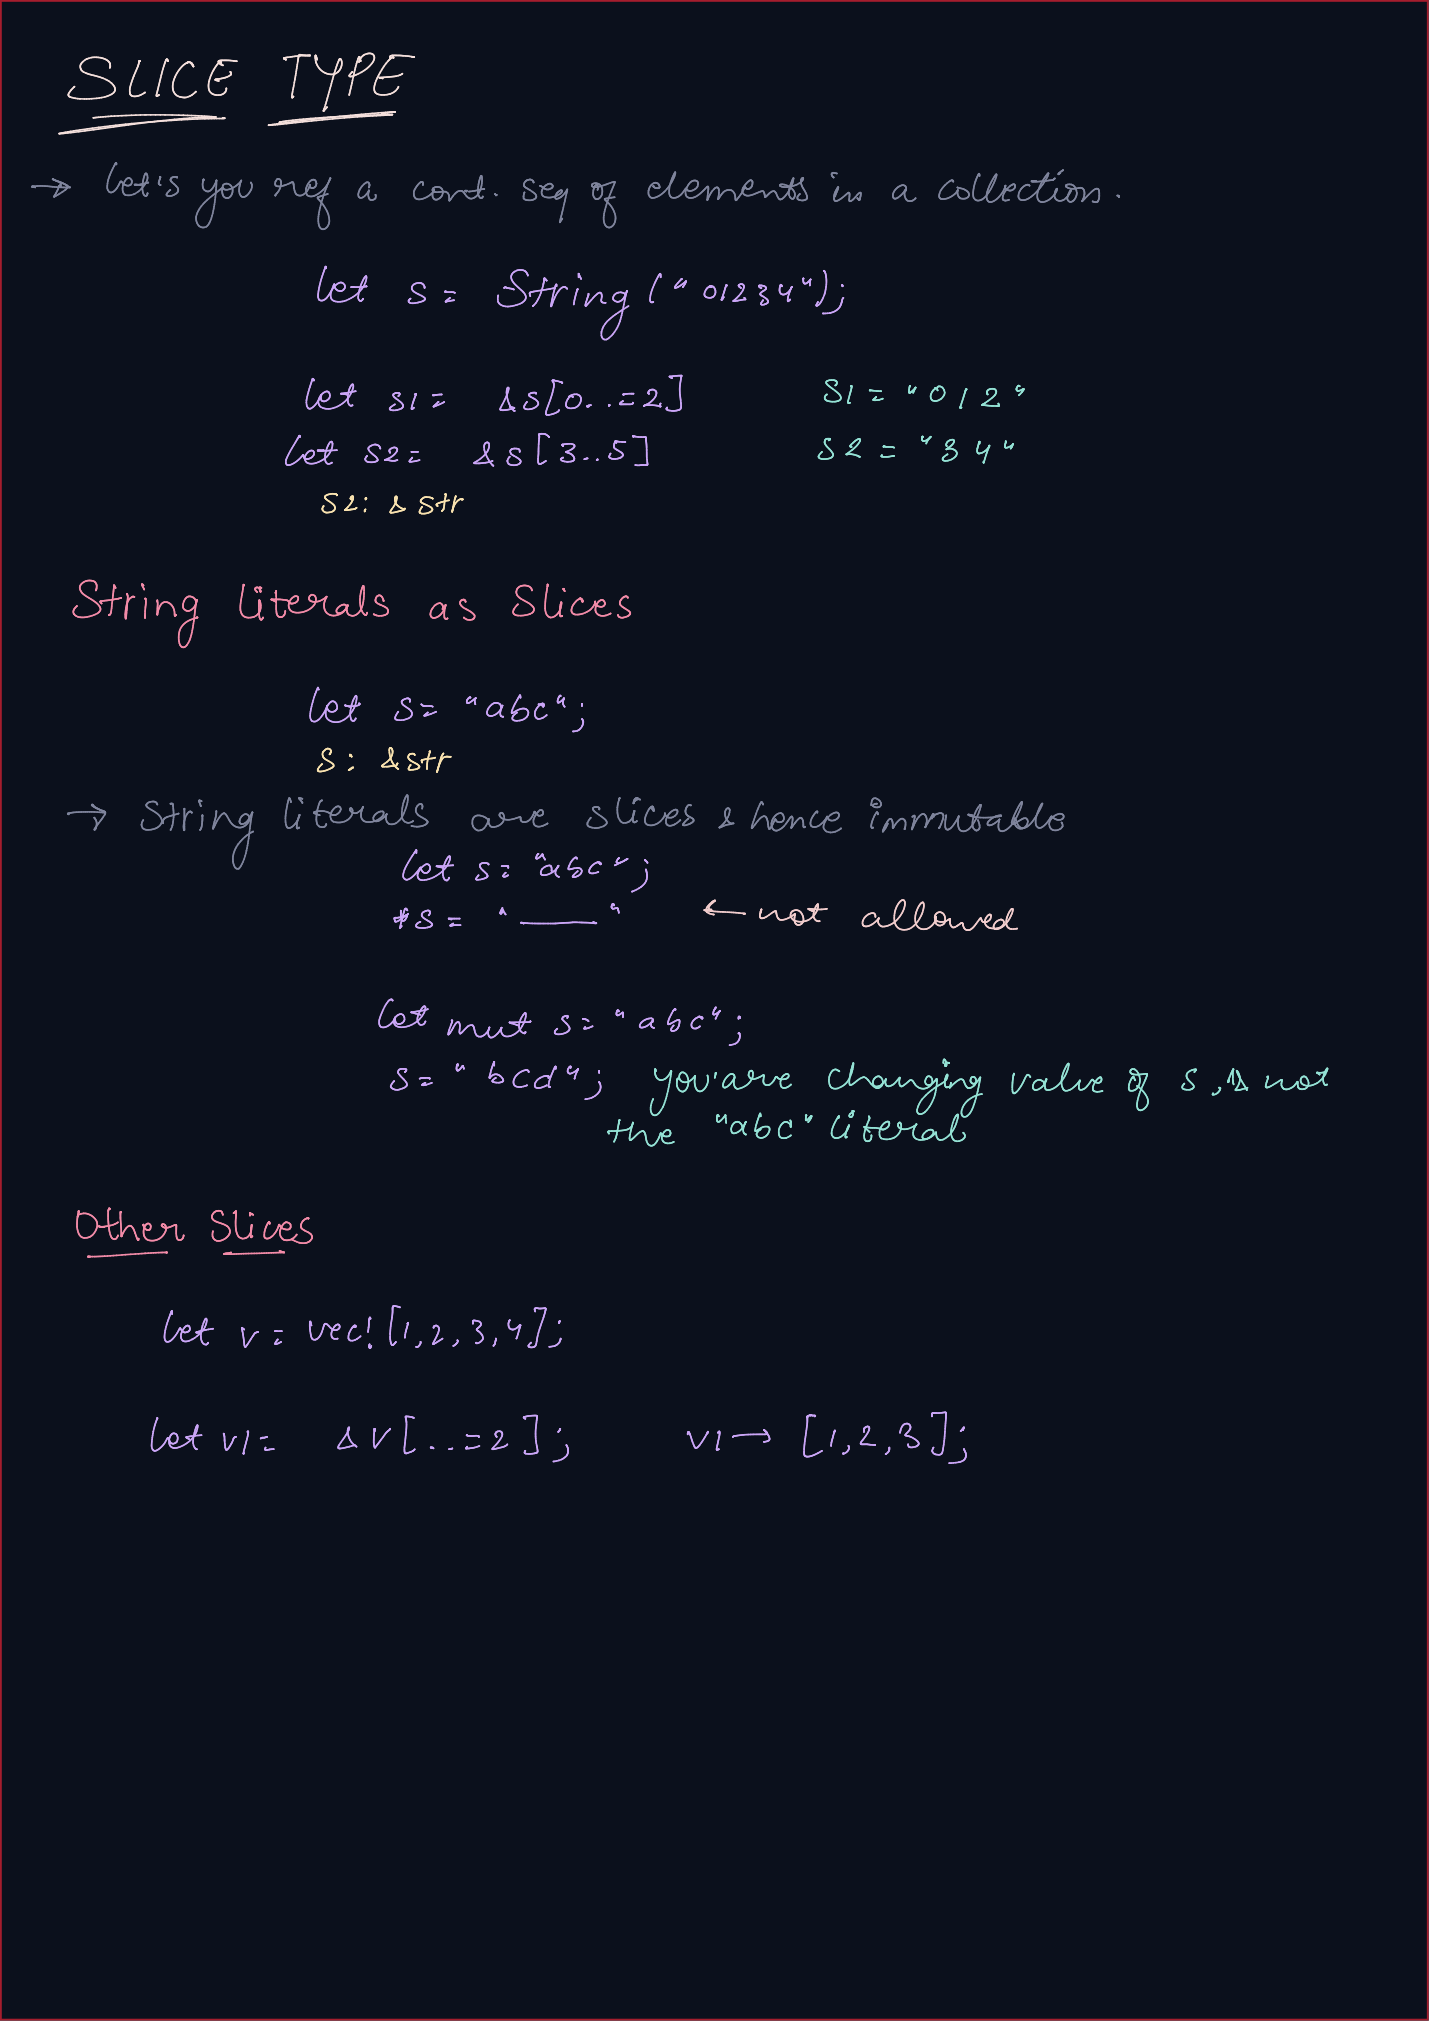 SLICE TYPE
→ Let's you ref a cont. seq of elements in a collection.
let s = String("01234");
let s1 = &s[0..=2] S1 = "012"
let s2 = &s[3..5] S2 = "34"
S2: &str
String literals as Slices
let s = "abc";
S: &str
→ String literals are slices & hence immutable
let s = "abc";
*s = "___" ← not allowed
let mut s = "abc";
s = "bcd"; you're changing value of s, & not
the "abc" literal
Other Slices
let v = vec![1,2,3,4];
let v1 = &v[..=2]; v1 → [1,2,3];